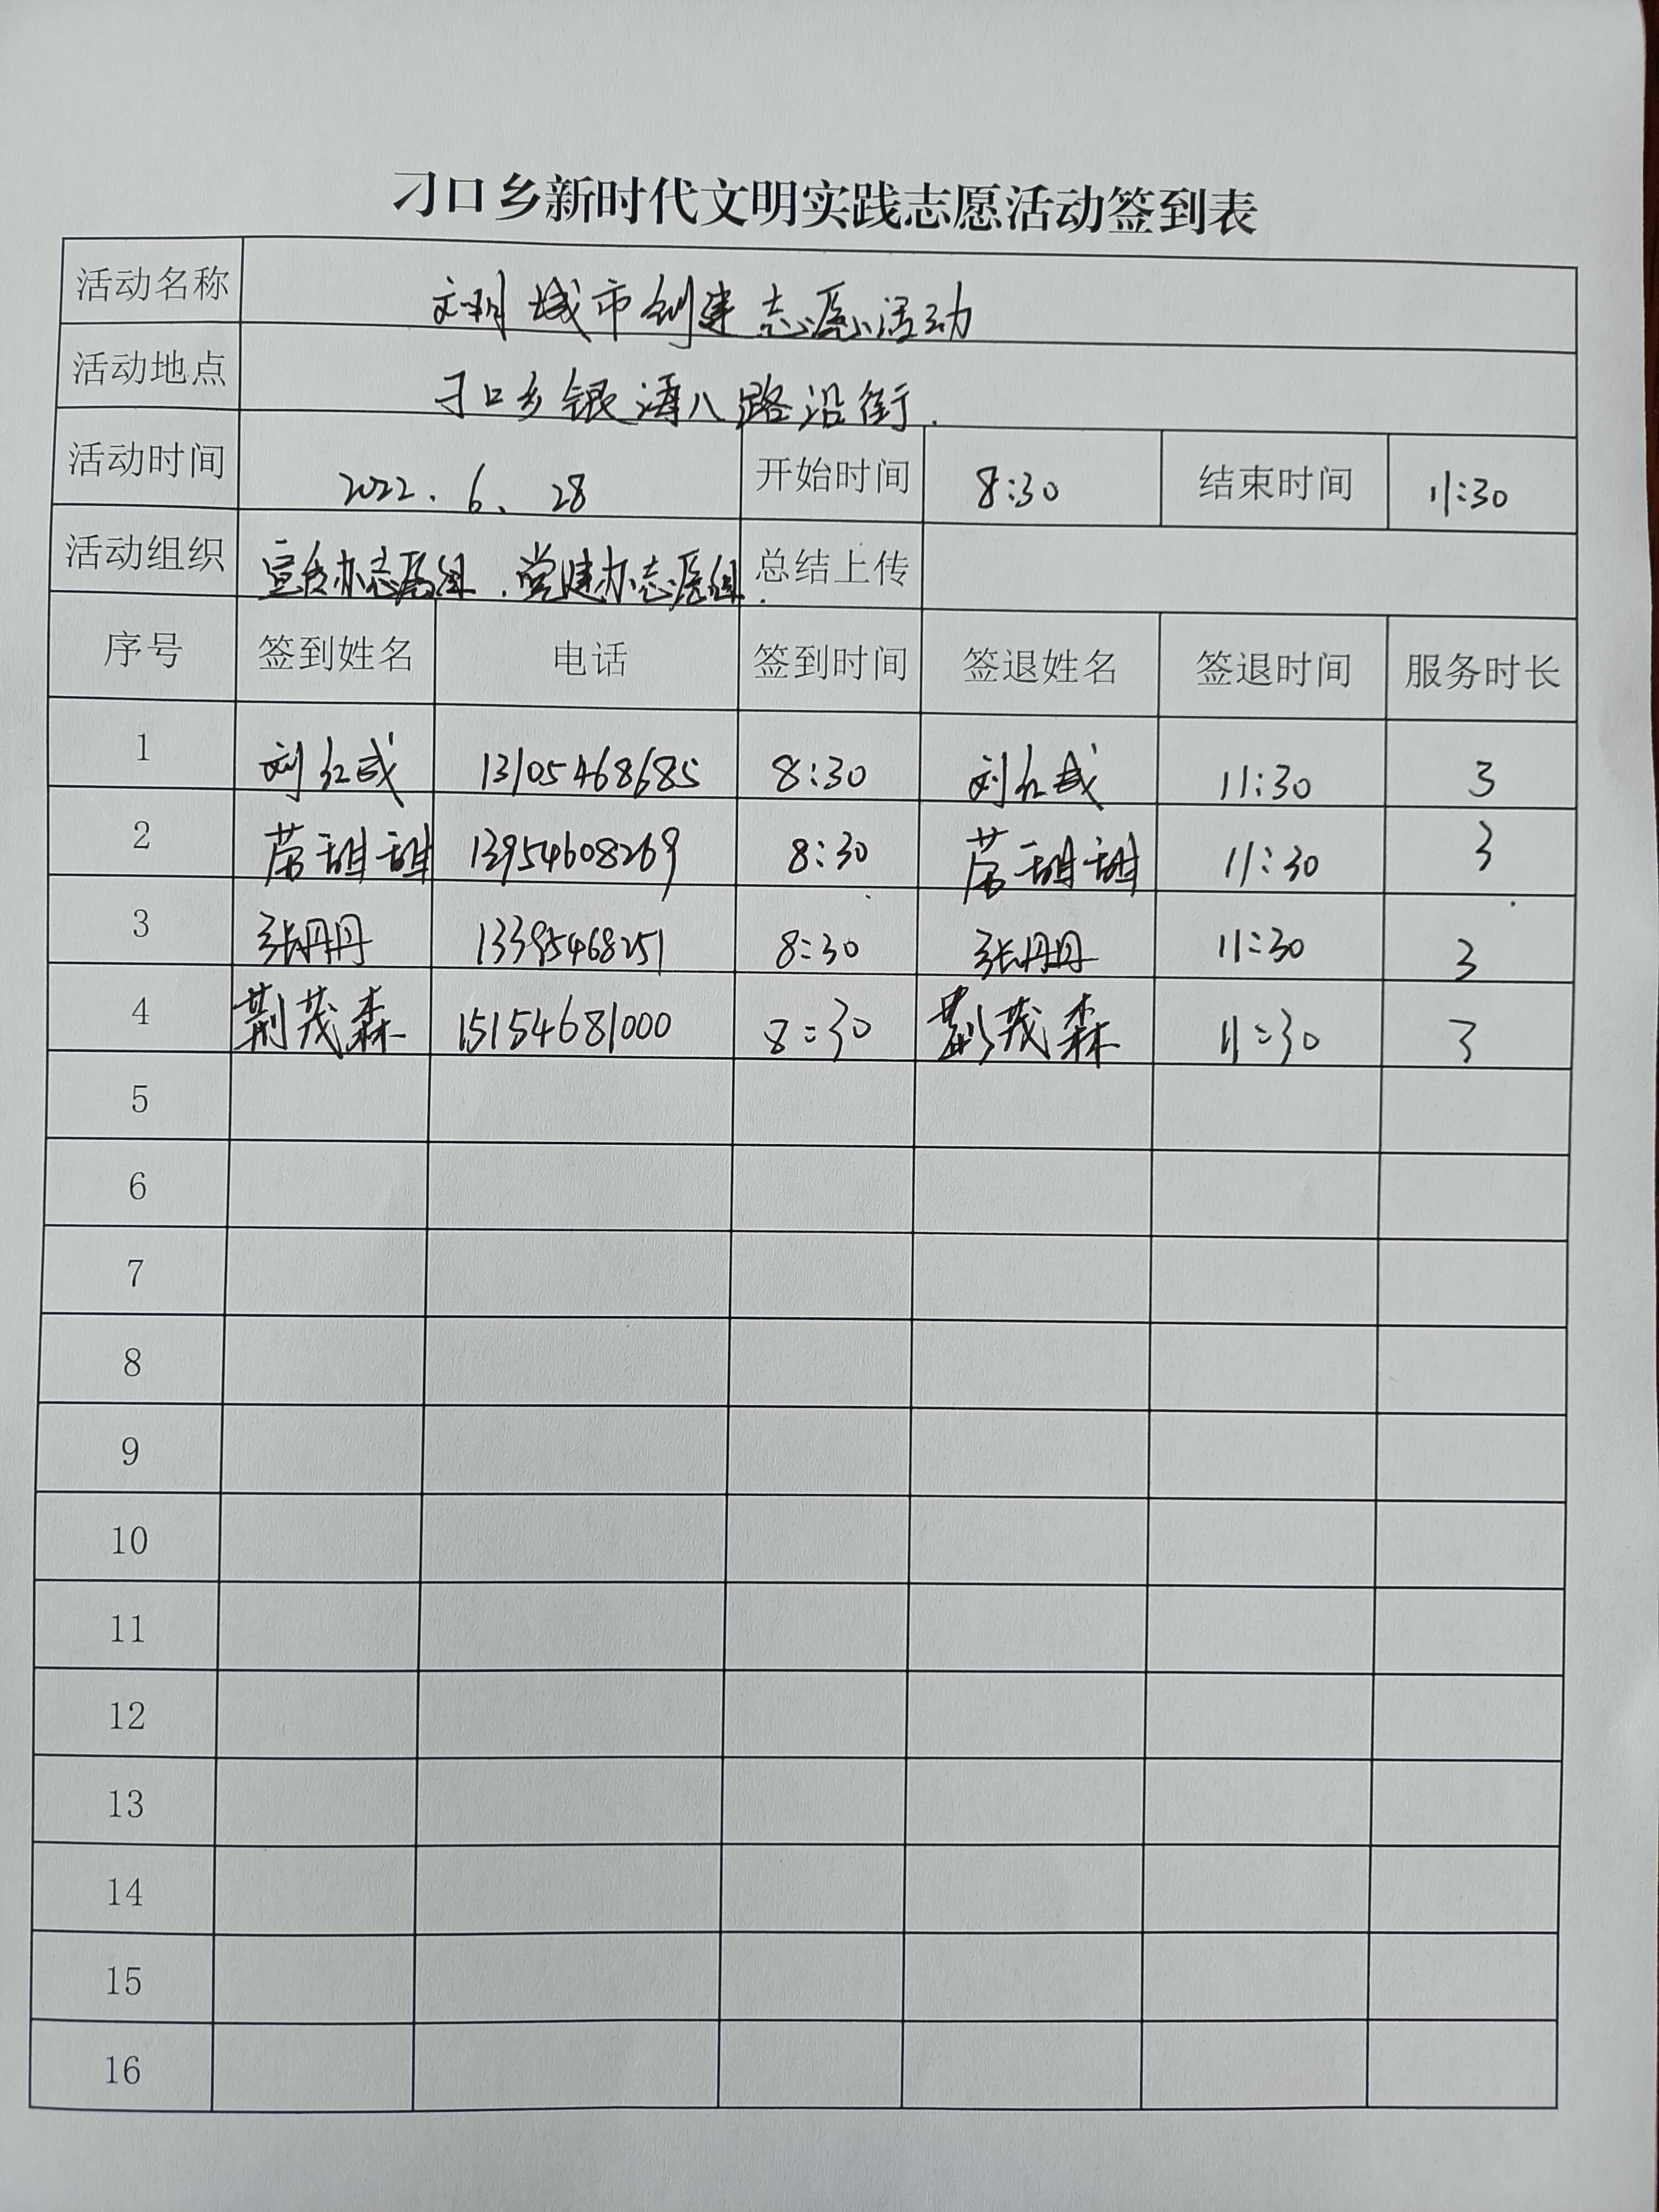 刁口乡新时代文明实践志愿活动签到表
活动名称 文明城市创建志愿活动
活动地点 刁口乡银海八路沿街.
活动时间 2022.6、28 开始时间 8:30 结束时间 11:30
活动组织 宣传办志愿组.党建办志愿组. 总结上传
序号 签到姓名 电话 签到时间 签退姓名 签退时间 服务时长
1 刘红成 13105468685 8:30 刘红成 11:30 3
2 荣甜甜 13954608269 8:30 荣甜甜 11:30 3
3 张丹丹 13395468251 8:30 张丹丹 11:30 3
4 荆茂森 15154681000 8:30 荆茂森 11:30 3
5
6
7
8
9
10
11
12
13
14
15
16